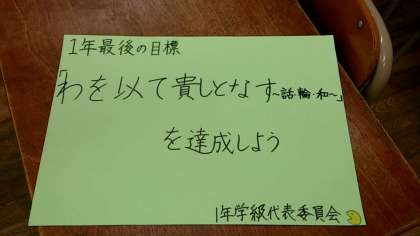 1年最後の目標
「わを以て貴しとなす~話・輪・和~」
を達成しよう
1年学級代表委員会